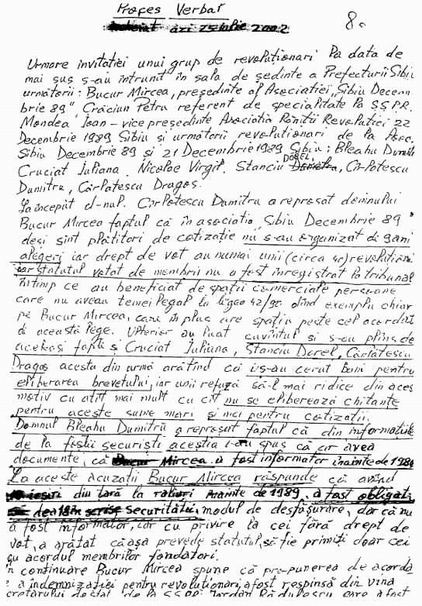 Proces Verbal
Încheiat azi 25 iulie 2002
8.
Urmare invitatiei unui grup de revolutionari la data de
mai sus s-au întrunit în sala de sedinte a Prefecturii Sibiu
urmatorii: Bucur Mircea, presedinte al Asociatiei "Sibiu Decem
brie 89" Craciun Petru referent de specialitate la SSPR.
Mondea Ioan - vicepresedinte Asociatia Ranitii Revolutiei 22
Decembrie 1989 Sibiu si urmatorii revolutionari de la Asoc.
Sibiu Decembrie 89 si 21 Decembrie 1989 Sibiu: Bleahu Dumitru
Cruciat Juliana, Nicolae Virgil, Stanciu DOREL, Cârlatescu
Dumitru, Cârlatescu Dragos.
La început d-nul. Cârlatescu Dumitru a reprosat domnului
Bucur Mircea faptul ca în asociatia "Sibiu Decembrie 89"
desi sînt platitori de cotizatie nu s-au organizat de 9 ani
alegeri iar drept de vot au numai unii (circa 40) revolutionari
iar statutul votat de membrii nu a fost înregistrat la tribunal
întimp ce au beneficiat de spatii comerciale persoane
care nu aveau temei legal la legea 42/90 dînd exemplu chiar
pe Bucur Mircea, care în plus are spatiu peste cel acordat
de aceasta lege. Ulterior au luat cuvîntul si s-au plîns de
aceleasi fapte si Cruciat Juliana, Stanciu Dorel, Cârlatescu
Dragos acesta din urma aratînd ca i s-au cerut bani pentru
eliberarea brevetului, iar unii refuza sa-l mai ridice din acest
motiv cu atît mai mult cu cît nu se elibereaza chitante
pentru aceste sume mari si nici pentru cotizatii.
Domnul Bleahu Dumitru a reprosat faptul ca din informatiile
de la fostii securisti acestia i-au spus ca ar avea
documente, ca Bucur Mircea a fost informator înainte de 1989
La aceste acuzatii Bucur Mircea raspunde ca avînd
iesiri din tara la raliuri înainte de 1989, a fost obligat
sa dea în scris securitatii, modul de desfasurare, dar ca nu
a fost informator, iar cu privire la cei fara drept de
vot, a aratat ca asa prevede statutul, sa fie primiti doar cei
cu acordul membrilor fondatori.
În continuare Bucur Mircea spune ca propunerea de acorda
re a indemnizatiei pentru revolutionari a fost respinsa din vina